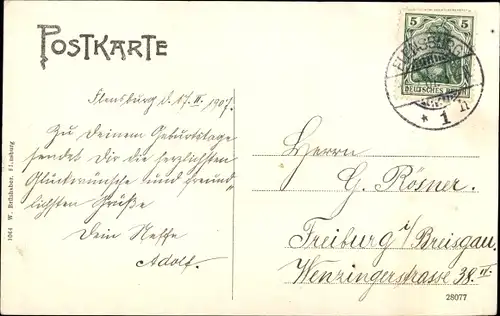 POSTKARTE
5 5
DEUTSCHES REICH
FLENSBURG
* 1 n
Flensburg d. 17. II. 1907.
Zu Deinem Geburtstage
sendet Dir die herzlichsten
Glückwünsche und freund
lichsten Grüße
Dein Neffe
Adolf.
Herrn
G. Rösner.
Freiburg i/Breisgau.
Wenzingerstrasse 38. II.
1044 W. Flensburg
28077